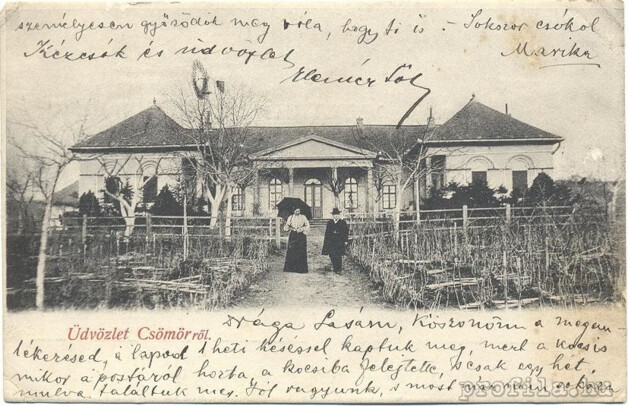 személyesen győződöt meg róla, hogy ti is - Sokszor csókol
Kézcsók és üdvözlet Marika
Elemér
Üdvözlet Csömörről.
Drága Lasám, Köszönöm a megem-
lékezésed, a lapod 1 heti késéssel kaptuk meg, mert a kocsis
mikor a postáról hozta a kocsiba felejtette, s csak egy hét
mulva találtuk meg. Jól vagyunk, s most már nem
profila.hu